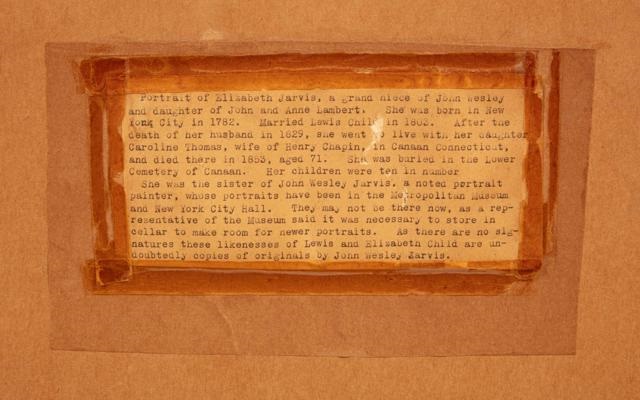 Portrait of Elizabeth Jarvis, a grand niece of John Wesley
and daughter of John and Anne Lambert. She was born in New
York City in 1782. Married Lewis Child in 1803. After the
death of her husband in 1829, she went to live with her daughter
Caroline Thomas, wife of Henry Chapin, in Canaan Connecticut,
and died there in 1853, aged 71. She was buried in the Lower
Cemetery of Canaan. Her children were ten in number
She was the sister of John Wesley Jarvis. a noted portrait
painter, whose portraits have been in the Metropolitan Museum
and New York City Hall. They may not be there now, as a rep-
resentative of the Museum said it was necessary to store in
cellar to make room for newer portraits. As there are no sig-
natures these likenesses of Lewis and Elizabeth Child are un-
doubtedly copies of originals by John Wesley Jarvis.